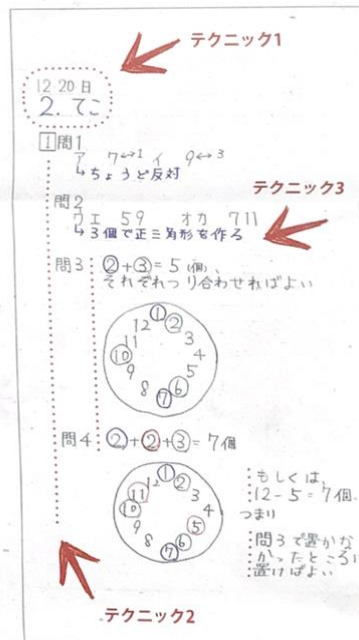 テクニック1
12 20日
2. てこ
1 問1
ア 7↔1 イ 9↔3
↳ちょうど反対
問2
テクニック3
ウエ 5 9 オカ 7 11
↳3個で正三角形を作る
問3 ②+③=5(個)、
それぞれつり合わせればよい
① ② 3 4 5 ⑥ ⑦ 8 9 ⑩ 11 12
問4 ②+②+③=7個
① ② 3 4 ⑤ ⑥ ⑦ 8 9 ⑩ ⑪ 12
もしくは、
12-5=7個、
つまり
問3で置かな
かったところに
置けばよい
テクニック2